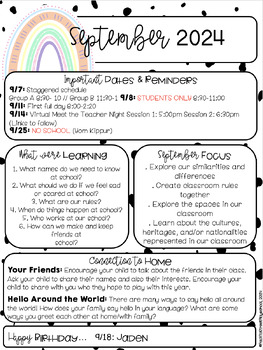 September 2024
Important Dates & Reminders
9/7: Staggered schedule
Group A 8:30- 10 // Group B 11:30-1 9/8: STUDENTS ONLY 8:30-11:00
9/11: First full day 8:00-2:20
9/14: Virtual Meet the Teacher Night Session 1: 5:00pm Session 2: 6:30pm
(Links to follow)
9/25: NO SCHOOL (Yom Kippur)
What we're Learning
1. What names do we need to know
at school?
2. What should we do if we feel
sad or scared at school?
3. What are our rules?
4. When do things happen at school?
5. Who works at our school?
6. How can we make and keep
friends at
school?
September Focus
. Explore our similarities and
differences
. Create classroom rules
together
. Explore the spaces in our
classroom
. Learn about the cultures,
heritages, and/or nationalities
represented in our classroom
Connection to Home
Your Friends: Encourage your child to talk about the friends in their class.
Ask your child to share their names and also their interests. Encourage your
child to share with you who they hope to play with this year.
Hello Around the World: There are many ways to say hello all around the
world! How does your family say hello in your language? What are some
ways you greet each other at home(with family)?
Happy Birthday... 9/18: Jaden